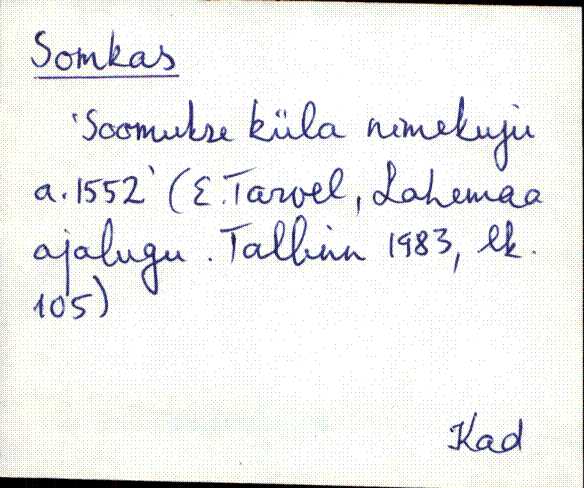 Somkas
'Soomukse küla nimekuju
a. 1552' (E. Tarvel, Lahemaa
ajalugu. Tallinn 1983, lk.
105)
Kad